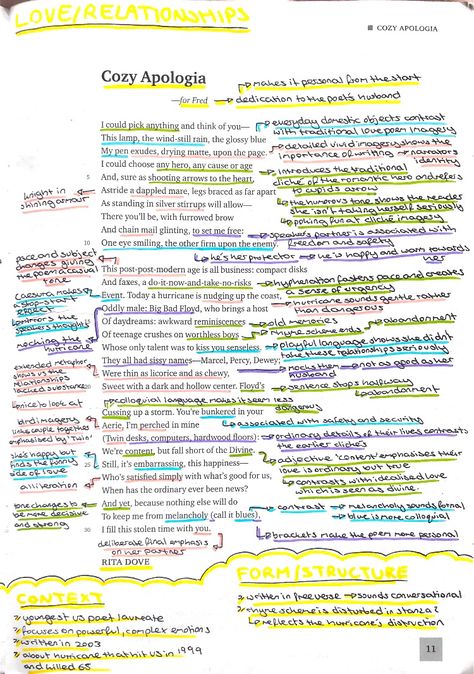 LOVE/RELATIONSHIPS
COZY APOLOGIA
Cozy Apologia
makes it personal from the start
—for Fred
dedication to the poet's husband
I could pick anything and think of you—
everyday domestic objects contrast
with traditional love poem imagery
This lamp, the wind-still rain, the glossy blue
My pen exudes, drying matte, upon the page.
detailed vivid imagery shows the
importance of writing → narrator's
identity
I could choose any hero, any cause or age
introduces the traditional
cliche of the romantic hero and refers
to cupid's arrow
5
And, sure as shooting arrows to the heart,
Astride a dappled mare, legs braced as far apart
knight in
shining armour
the humorous tone shows the reader
she isn't taking herself seriously
As standing in silver stirrups will allow—
poking fun at cliche imagery
There you'll be, with furrowed brow
And chain mail glinting, to set me free:
speaker's partner is associated with
freedom and safety
10
One eye smiling, the other firm upon the enemy.
he's her protector → he is happy and warm towards
her
pace and subject
changes giving
the poem a casual
tone
This post-post-modern age is all business: compact disks
And faxes, a do-it-now-and-take-no-risks
hyphenation fastens pace and creates
a sense of urgency
caesura makes
a stop-start
effect
Event. Today a hurricane is nudging up the coast,
hurricane sounds gentle rather
than dangerous
Oddly male: Big Bad Floyd, who brings a host
mocking the
hurricane
15
Of daydreams: awkward reminiscences
old memories
abandonment
Of teenage crushes on worthless boys
rhyme scheme ends
Whose only talent was to kiss you senseless.
playful language shows she didn't
take these relationships seriously
They all had sissy names—Marcel, Percy, Dewey;
mocks them → not as good as her
husband
extended metaphor
shows the
relationships
lacked substance
Were thin as licorice and as chewy,
20
Sweet with a dark and hollow center. Floyd's
sentence stops halfway
abandonment
nice to look at
colloquial language makes it seem less
dangerous
Cussing up a storm. You're bunkered in your
bird imagery
links them together
emphasised by 'Twin'
Aerie, I'm perched in mine
associated with safety and security
(Twin desks, computers, hardwood floors):
ordinary details of their lives contrasts
the earlier cliches
We're content, but fall short of the Divine.
adjective 'content' emphasises their
love is ordinary but true
she's happy but
finds the funny
side of love
25
Still, it's embarrassing, this happiness—
contrasts with idealised love
which is seen as divine.
Who's satisfied simply with what's good for us,
alliteration
When has the ordinary ever been news?
And yet, because nothing else will do
contrast
melancholy sounds formal
tone changes to
be more decisive
and strong
To keep me from melancholy (call it blues),
blue is more colloquial
30
I fill this stolen time with you.
brackets make the poem more personal
deliberate final emphasis
on her partner
RITA DOVE
CONTEXT
youngest US poet laureate
focuses on powerful, complex emotions
written in 2003
about hurricane that hit US in 1999
and killed 65
FORM/STRUCTURE
written in free verse → sounds conversational
rhyme scheme is disturbed in stanza 2
reflects the hurricane's distruction
11